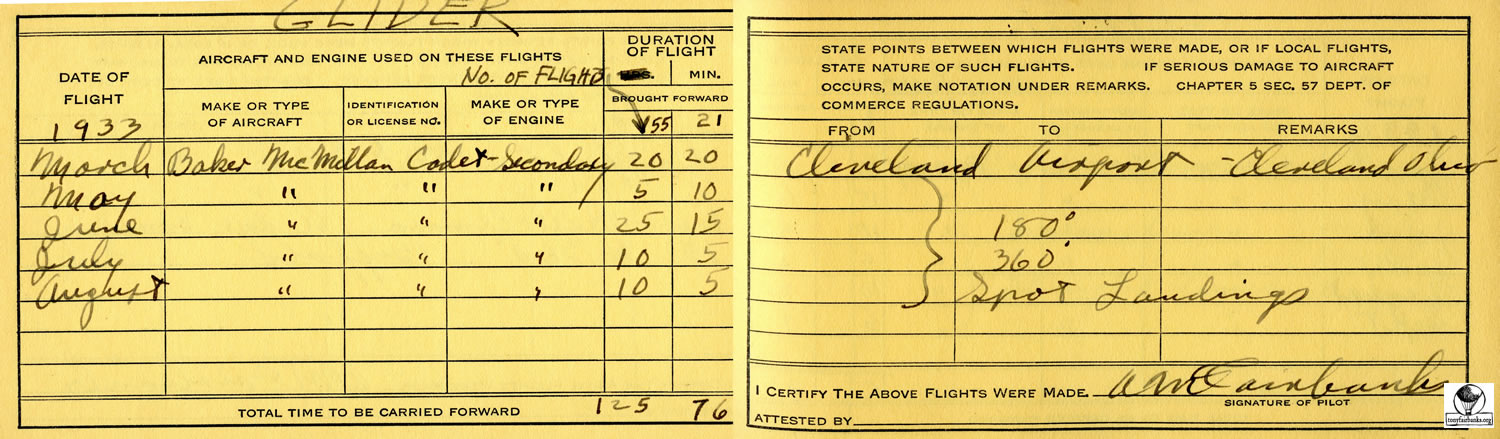 GLIDER
DATE OF FLIGHT
1933
AIRCRAFT AND ENGINE USED ON THESE FLIGHTS
NO. OF FLIGHTS
DURATION OF FLIGHT
MIN.
MAKE OR TYPE OF AIRCRAFT
IDENTIFICATION OR LICENSE NO.
MAKE OR TYPE OF ENGINE
BROUGHT FORWARD
55 21
March Baker McMillan Cadet-Secondary 20 20
May " " " 5 10
June " " " 25 15
July " " " 10 5
August " " " 10 5
TOTAL TIME TO BE CARRIED FORWARD 125 76
STATE POINTS BETWEEN WHICH FLIGHTS WERE MADE, OR IF LOCAL FLIGHTS,
STATE NATURE OF SUCH FLIGHTS. IF SERIOUS DAMAGE TO AIRCRAFT
OCCURS, MAKE NOTATION UNDER REMARKS. CHAPTER 5 SEC. 57 DEPT. OF
COMMERCE REGULATIONS.
FROM TO REMARKS
Cleveland Airport - Cleveland Ohio
180°
360°
Spot Landings
I CERTIFY THE ABOVE FLIGHTS WERE MADE. Fairbanks
SIGNATURE OF PILOT
ATTESTED BY
tonyfairbanks.org